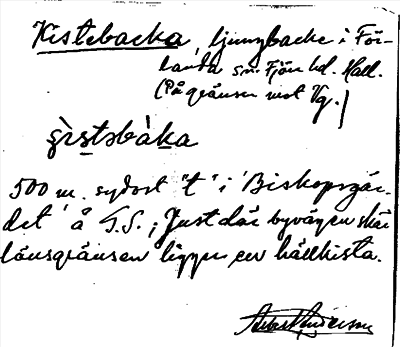 Kistebacka, ljungbacke i För-
landa sn. Fjäre hd. Hall.
(På gränsen mot Vg.)
500 m. sydost "t" i 'Biskopsgår-
det' å T.S.; Just där byvägen skär
länsgränsen ligger en hällkista.